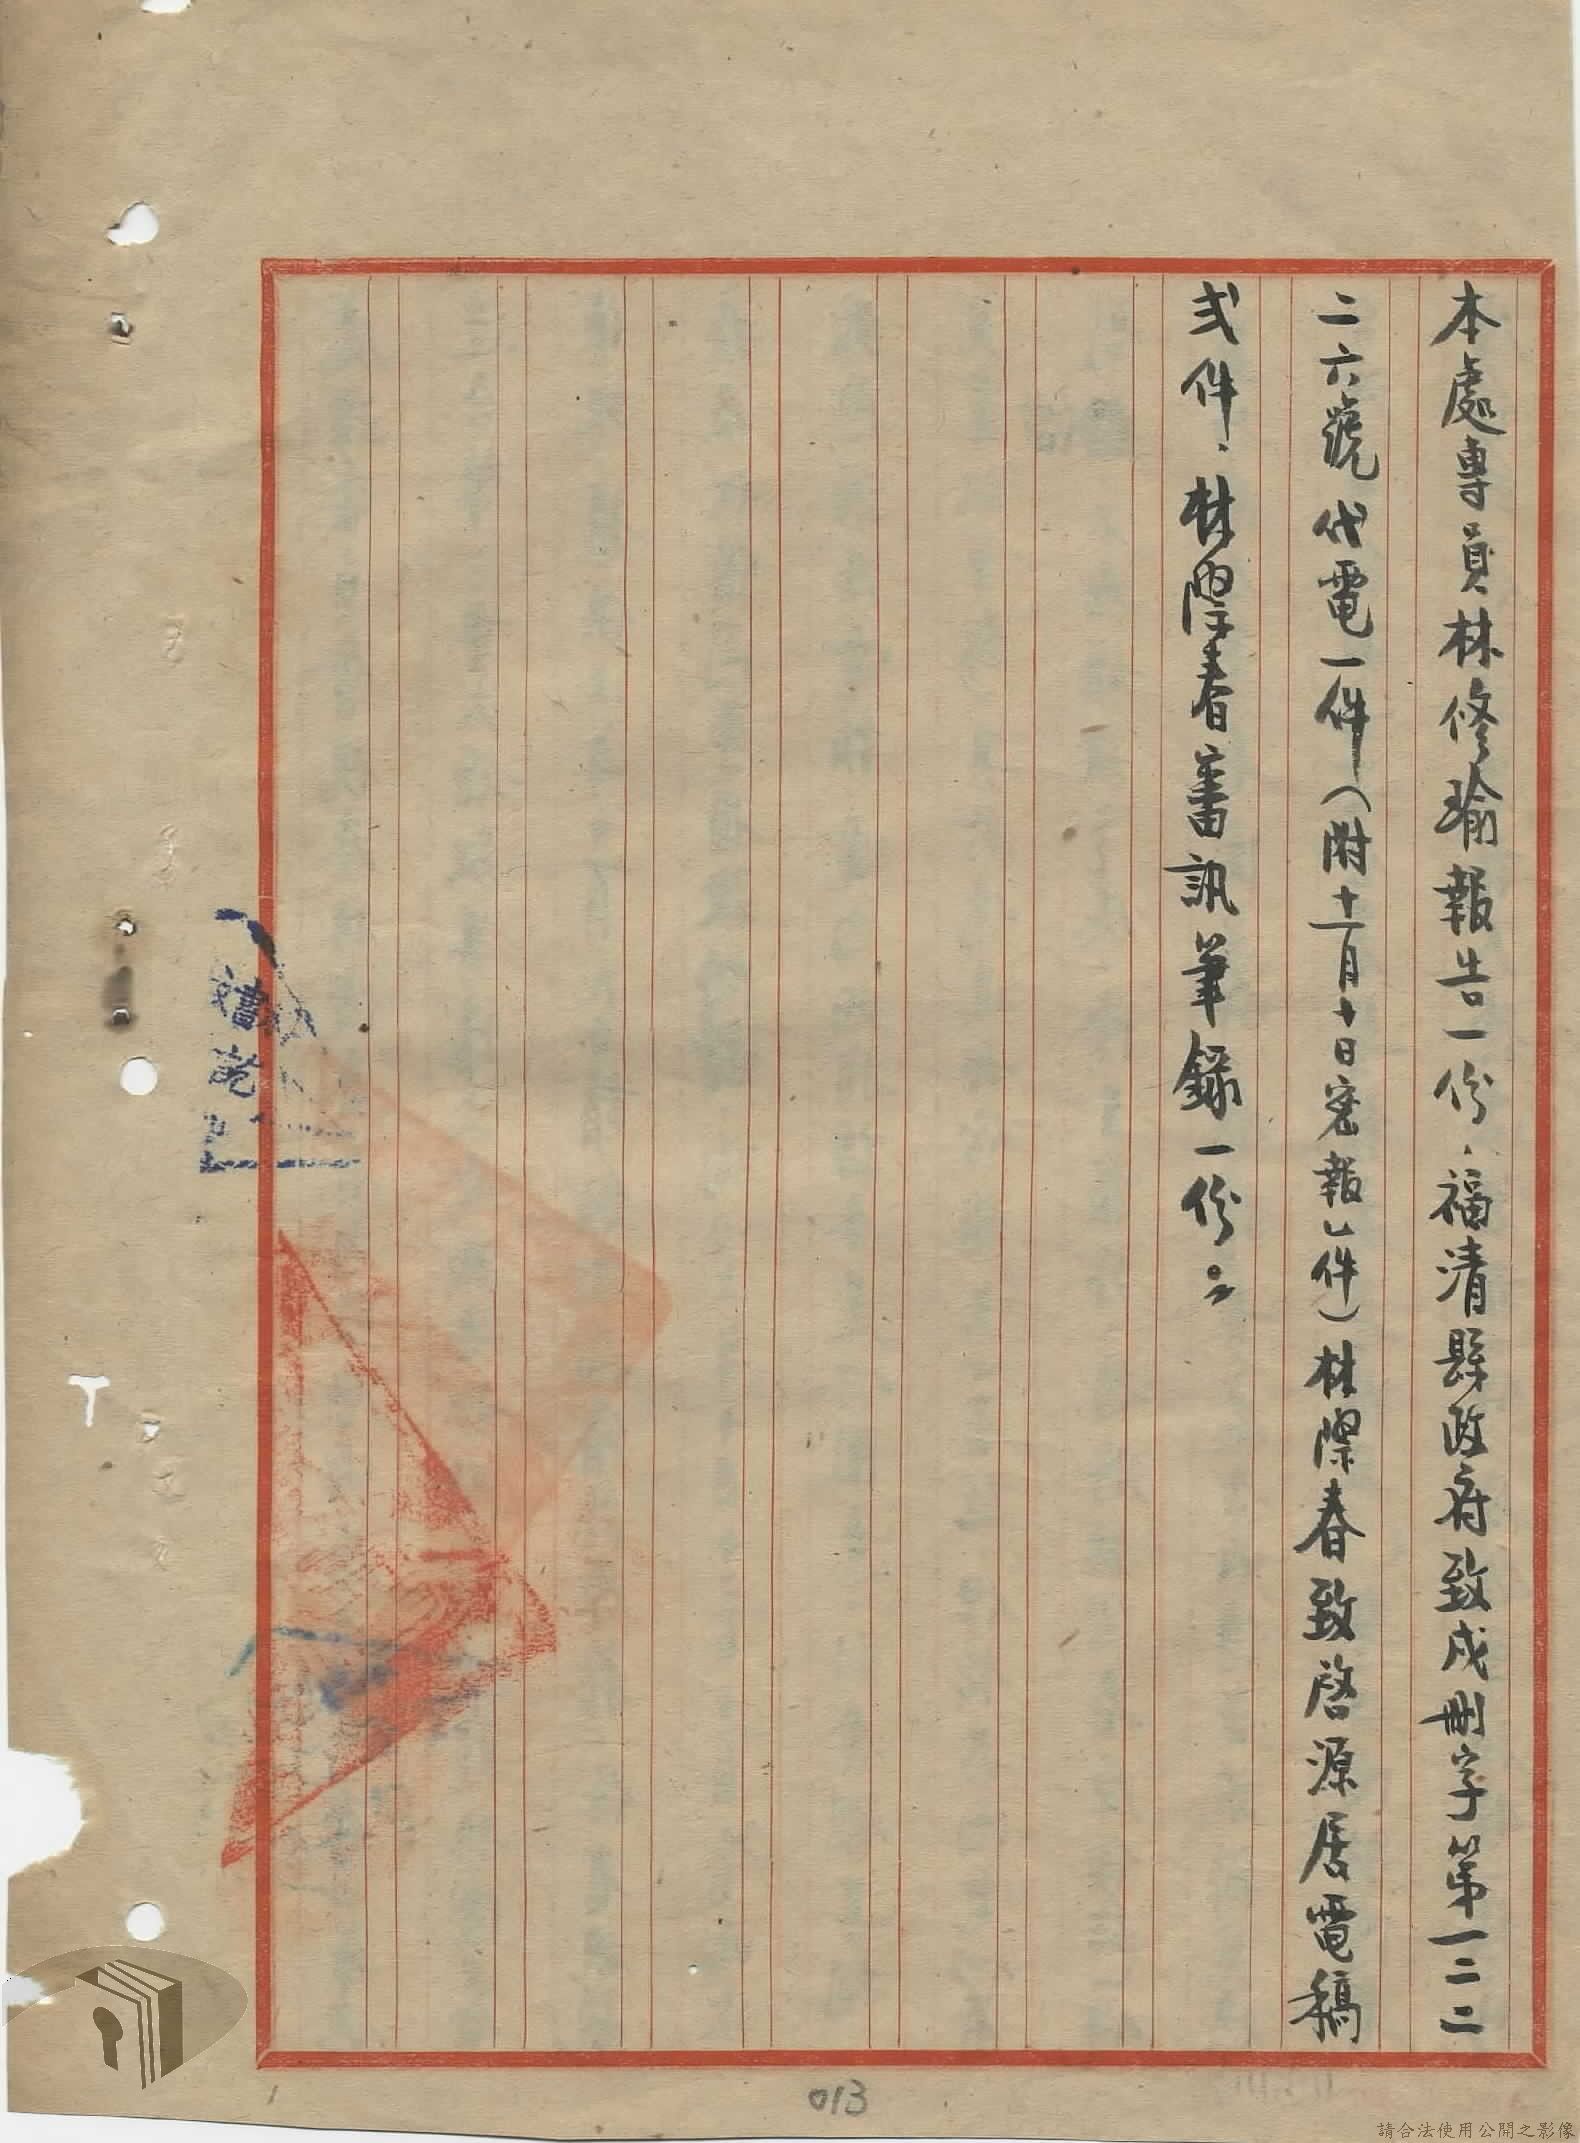 本處專員林修瑜報告一份、福清縣政府致戌刪字第一二二
二六號代電一件（附十一月十日密報乙件）林際春致啓源居電稿
弍件、林際春審訊筆錄一份。
013
請合法使用公開之影像